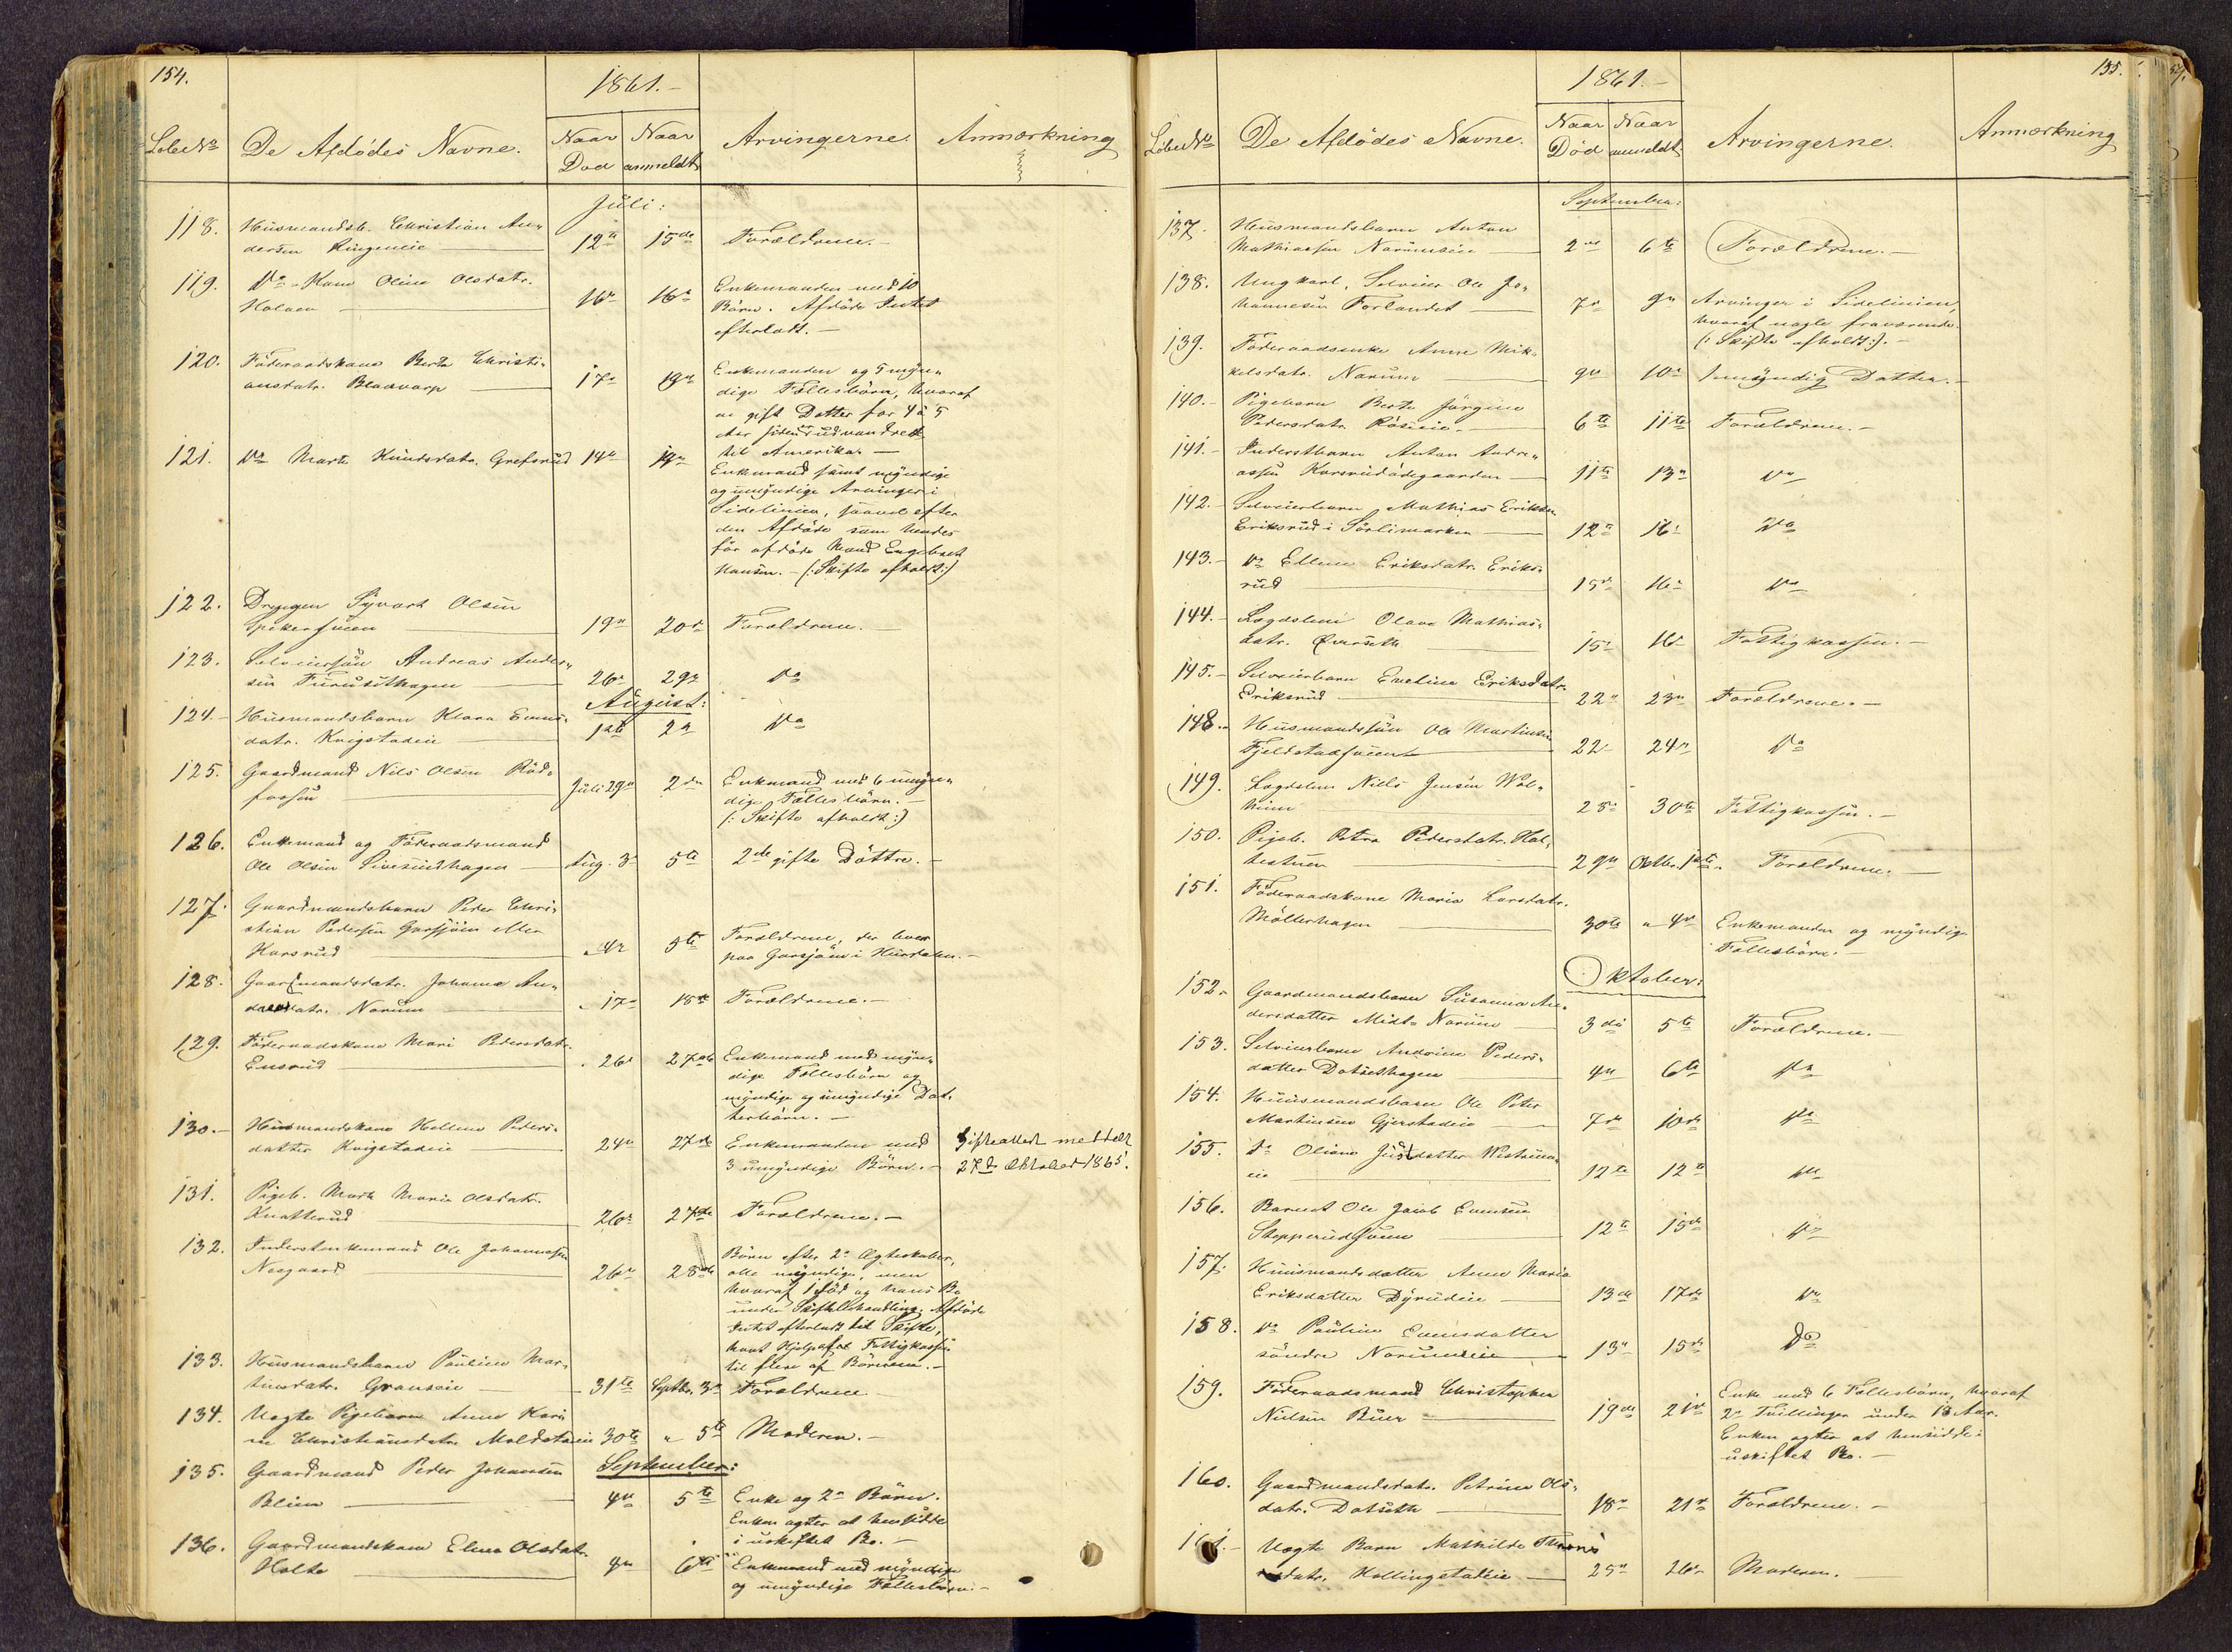 154.
1861.-
Løbe No De Afdödes Navne. Naar Død Naar anmeldt Arvingerne. Anmærkning
Juli:
118. Husmandsb. Christian An-
dersen Ringeneie 12te 15de Forældrene.-
119. Do - Kone Oline Olsdatr.
Holmen 16de 16de Enkemanden med 10
Børn. Afdøde Intet
efterladt.-
120. Föderaadskone Berte Christi-
ansdatr. Blaavarp 17de 19de Enkemanden og 5 myn-
dige Fællesbörn, hvoraf
en gift Datter for 4 à 5
Aar siden udvandret
til Amerika.-
121. Do Marte Knudsdatr. Grefsrud 14de 19de
Enkemand samt myndige
og umyndige Arvinger i
Sidelinien, saavel efter
den Afdøde som hendes
før afdøde Mand Engebret
Hansen.- (: Skifte afholdt:)
122. Drengen Syvert Olsen
19de 20de Forældrene.-
123. Selveiersön Andreas Ander-
sen Furusethagen 26de 29de Do
August:
124.- Husmandsbarn Klara Evens-
datr. Kvigstadeie 1ste 2den Do
125. Gaardmand Nils Olsen Röd-
fossen Juli 29de 2den Enkemand med 6 umyn-
dige Fællesbörn.-
(: Skifte afholdt:)
126. Enkemand og Föderaadsmand
Ole Olsen Sivesindhagen Aug. 3de 5te 2de gifte Döttre.-
127. Gaardmandsbarn Peder Chri-
stian Pedersen Garsjöen eller
Korsrud " 4de 5te Forældrene, der boer
paa Garsjöen i Hurdalen.-
128. Gaardmandsdatr. Johanne An-
dersdatr. Narum " 17de 18de Forældrene.-
129. Föderaadskone Mari Pedersdatr.
Ensrud " 26de 27de Enkemand med myn-
dige Fællesbörn og
myndige og umyndige Dat-
terbörn.-
130.- Husmandskone Helline Peders-
datter Kvigstadeie 24de 27de Enkemanden med
3 umyndige Börn.-
Gifteattest meddelt
27de Oktober 1865.
131. Pigeb. Marte Marie Olsdatr.
Knatterud 26de 27de Forældrene.-
132. Inderstenkemand Ole Johannesen
Neegaard 26de 28de
Börn efter 2de Ægteskaber,
alle myndige, men
hvoraf 1 död og hans Bo
under Skiftebehandling. Afdøde
Intet efterladt til Skifte,
havt Hjelp af Fattigkassen
til flere af Börnene.-
133. Husmandsbarn Pauline Mar-
tinsdatr. Granseie 31te Septbr. 3de Forældrene
134. Uægte Pigebarn Anne Kari-
ne Christiansdatr. Moldstadeie 30te " 5te Moderen.-
September:
135. Gaardmand Peder Johansen
Blien 4de 5te Enke og 2de Börn.
Enken agter at hensidde
i uskiftet Bo.-
136. Gaardmandskone Elina Olsdatr.
Holte 4de 6te Enkemand med myndige
og umyndige Fællesbörn.-
1861.-
155.
Løbe No De Afdödes Navne. Naar Död Naar anmeldt Arvingerne. Anmærkning
September:
137. Husmandsbarn Anton
Mathiassen Narumseie 2den 6te Forældrene.-
138. Ungkarl, Selveier Ole Jo-
hannesen Forlandet 7de 9de Arvinger i Sidelinien,
hvoraf nogle fraværende.
(: Skifte afholdt:).-
139. Föderaadsenke Anne Mik-
kelsdatr. Narum 9de 10de 1 myndig Datter.-
140.- Pigebarn Berte Jörgine
Pedersdatr. 6te 11te Forældrene.-
141.- Inderstbarn Anton Andre-
assen Korsrudödegaarden 11te 13de Do
142.- Selveierbarn Mathias Eriksen
Eriksrud i Sörlimarken 12te 16de Do
143.- Do Elline Eriksdatr. Eriks-
rud 15de 16de Do
144.- Lægdslem Olava Mathias-
datr. Qværseth 15de 16de Fattigkassen.-
145.- Selveierbarn Eveline Eriksdatr.
Eriksrud 22de 23de Forældrene.-
148.- Husmandssön Ole Martinsen
22de 24de Do
149. Lægdslem Niels Jensen Wol-
25de 30te Fattigkassen.-
150. Pigeb. Petra Pedersdatr. Hol-
29de Oktbr. 1ste. Forældrene.-
151. Föderaadskone Maria Larsdatr.
Möllerhagen 30te " 4de Enkemanden og myndige
Fællesbörn.-
Oktober:
152. Gaardmandsbarn Susanna An-
dersdatter Midt-Narum 3die 5te Forældrene.-
153. Selveierbarn Andrine Peders-
datter Dotsethagen 4de 6te Do
154. Huusmandsbarn Ole Peter
Martinsen Gjerstadeie 7de 10de Do
155. Do Oliane Juelsdatter Westrum-
eie 12te 12te Do
156. Barnet Ole Jacob Evensen
Stepperudsveen 12te 15de Do
157. Huusmandsdatter Anne Maria
Eriksdatter Dyrudeie 13de 17de Do
158. Do Pauline Evensdatter
söndre Narumseie 13de 15de Do
159. Föderaadsmand Christopher
Nielsen Buer 19de 21de Enke med 6 Fællesbörn, hvoraf
2de Tvillinger under 18 Aar.
Enken agter at hensidde i
uskiftet Bo.-
160. Gaardmandsdatr. Petrine Ols-
datr. Dotseth 18de 21de Forældrene.-
161.- Uægte Barn Mathilde
datr. Kollingstadeie 25de 26de Moderen.